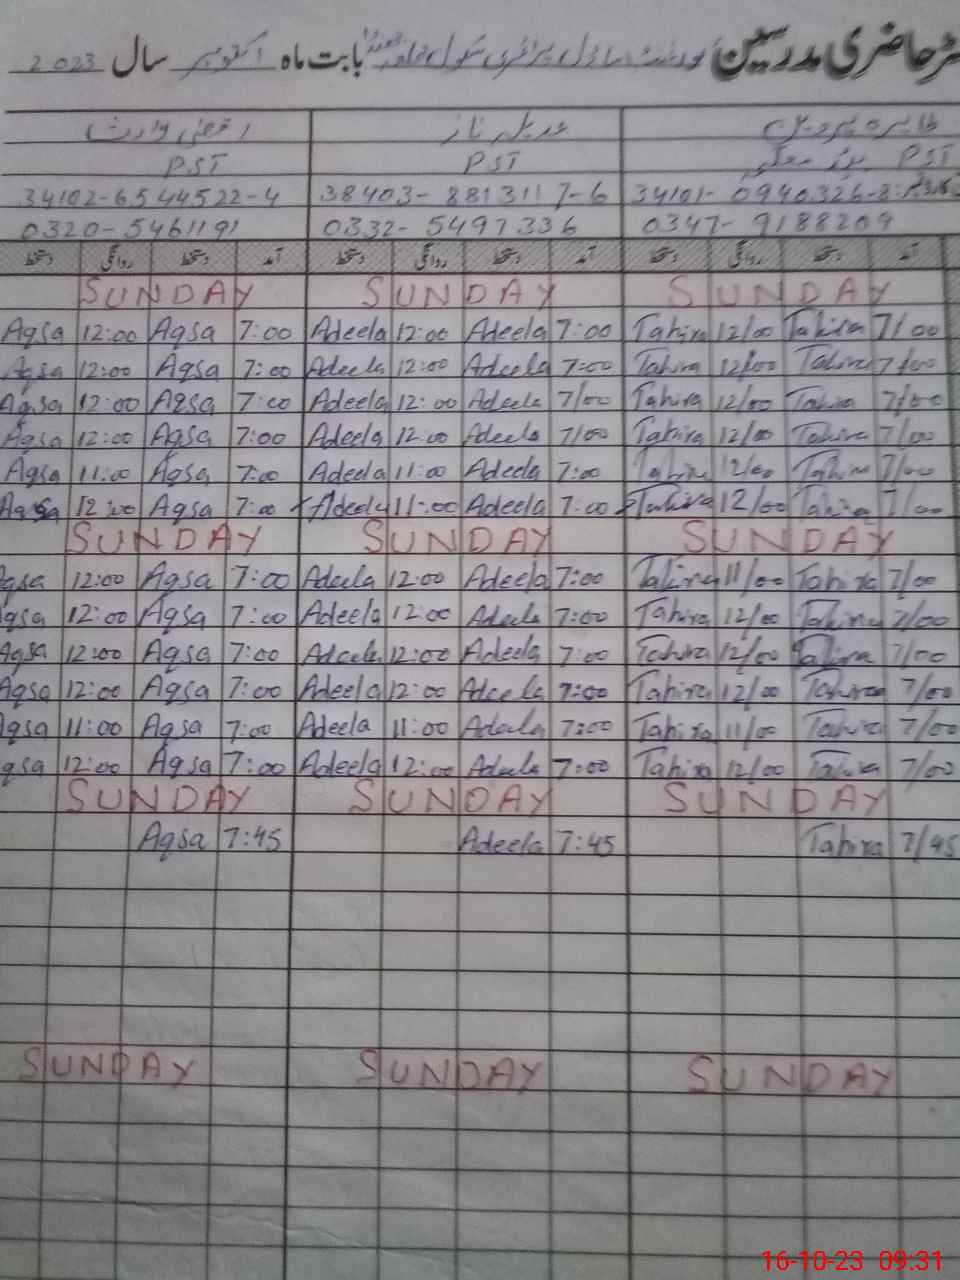 حاضری مدرسین گورنمنٹ ماڈل پرائمری سکول بابت ماہ اکتوبر سال 2023
اقصیٰ وارث عدیلہ ناز طاہرہ پروین
PST PST PST
34102-6544522-4 38403-8813117-6 34101-0940326-8
0320-5461191 0332-5497336 0347-9188209
دستخط روانگی دستخط آمد دستخط روانگی دستخط آمد دستخط روانگی دستخط آمد
SUNDAY SUNDAY SUNDAY
Aqsa 12:00 Aqsa 7:00 Adeela 12:00 Adeela 7:00 Tahira 12/00 Tahira 7/00
Aqsa 12:00 Aqsa 7:00 Adeela 12:00 Adeela 7:00 Tahira 12/00 Tahira 7/00
Aqsa 12:00 Aqsa 7:00 Adeela 12:00 Adeela 7/00 Tahira 12/00 Tahira 7/00
Aqsa 12:00 Aqsa 7:00 Adeela 12:00 Adeela 7/00 Tahira 12/00 Tahira 7/00
Aqsa 11:00 Aqsa 7:00 Adeela 11:00 Adeela 7:00 Tahira 12/00 Tahira 7/00
Aqsa 12:00 Aqsa 7:00 Adeela 11:00 Adeela 7:00 Tahira 12/00 Tahira 7/00
SUNDAY SUNDAY SUNDAY
Aqsa 12:00 Aqsa 7:00 Adeela 12:00 Adeela 7:00 Tahira 11/00 Tahira 7/00
Aqsa 12:00 Aqsa 7:00 Adeela 12:00 Adeela 7:00 Tahira 12/00 Tahira 7/00
Aqsa 12:00 Aqsa 7:00 Adeela 12:00 Adeela 7:00 Tahira 12/00 Tahira 7/00
Aqsa 12:00 Aqsa 7:00 Adeela 12:00 Adeela 7:00 Tahira 12/00 Tahira 7/00
Aqsa 11:00 Aqsa 7:00 Adeela 11:00 Adeela 7:00 Tahira 11/00 Tahira 7/00
Aqsa 12:00 Aqsa 7:00 Adeela 12:00 Adeela 7:00 Tahira 12/00 Tahira 7/00
SUNDAY SUNDAY SUNDAY
Aqsa 7:45 Adeela 7:45 Tahira 7/45
SUNDAY SUNDAY SUNDAY
16-10-23 09:31